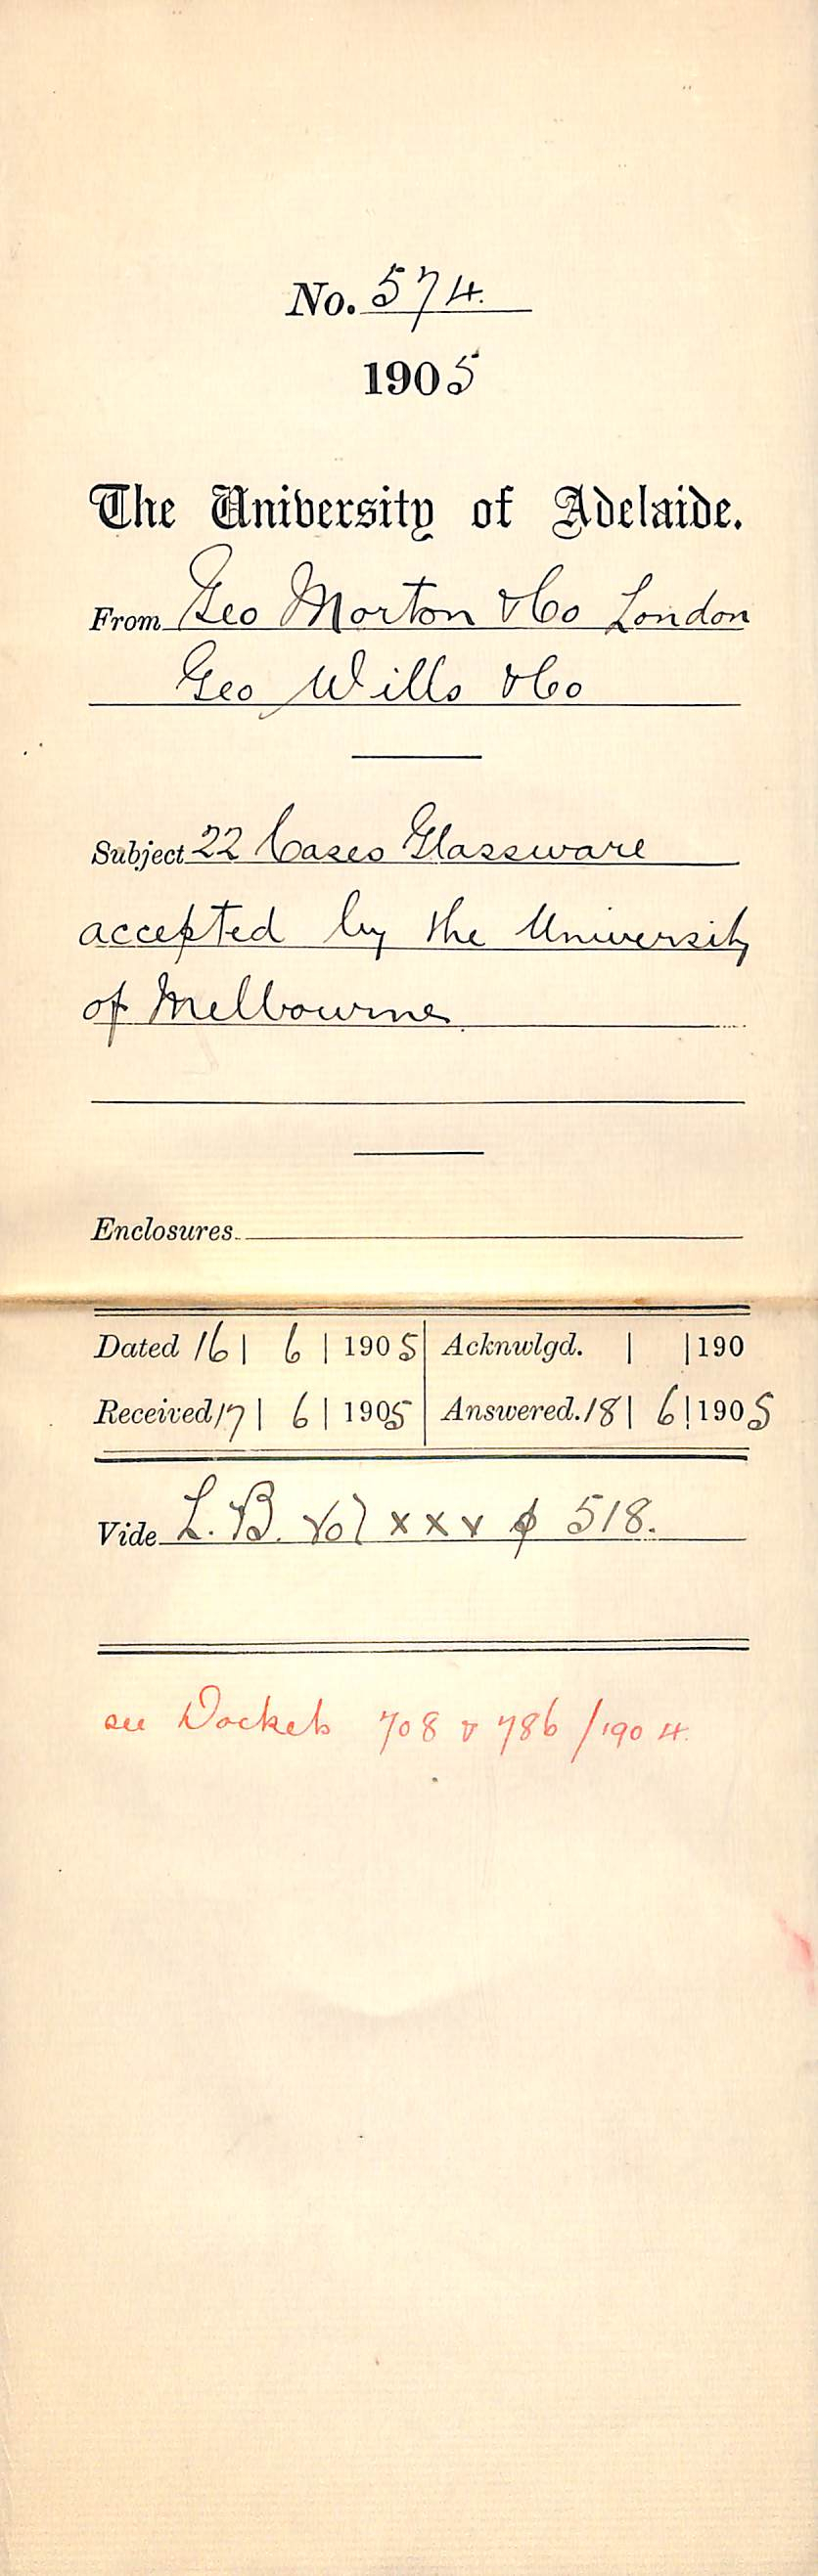 No. 574.
1905
The University of Adelaide.
From Geo Morton & Co London
Geo Wills & Co
Subject 22 Cases Glassware
accepted by the University
of Melbourne
Enclosures
Dated 16 | 6 | 1905 Acknwlgd. | | 190
Received 17 | 6 | 1905 Answered. 18 | 6 | 1905
Vide L. B. Vol xxv p 518.
see Dockets 708 & 786 /1904.